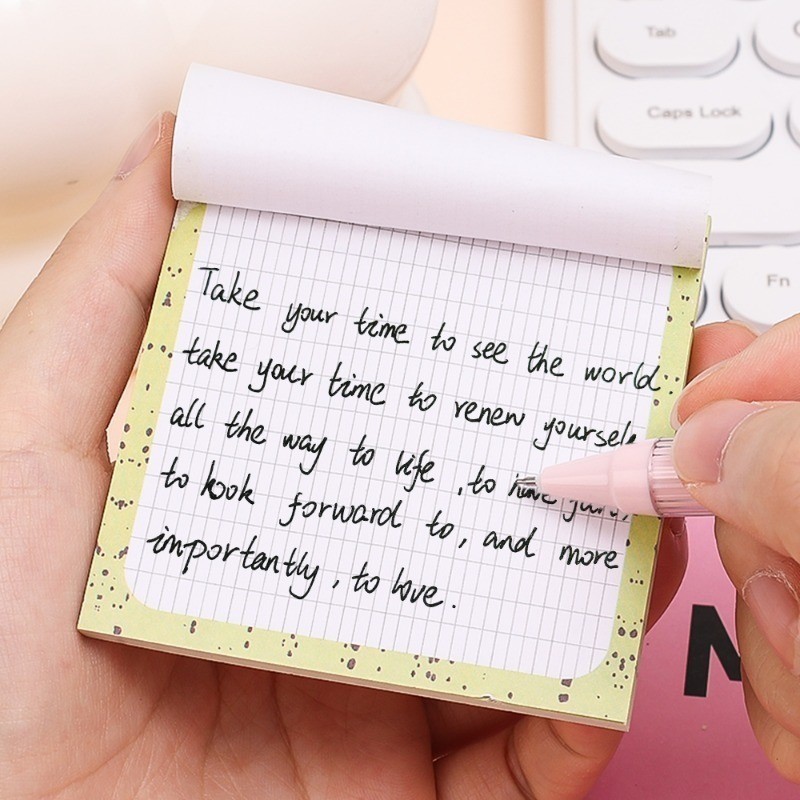 Take your time to see the world
take your time to renew yourself
all the way to life , to have
to look forward to, and more
importantly , to love .
Tab
Caps Lock
Fn